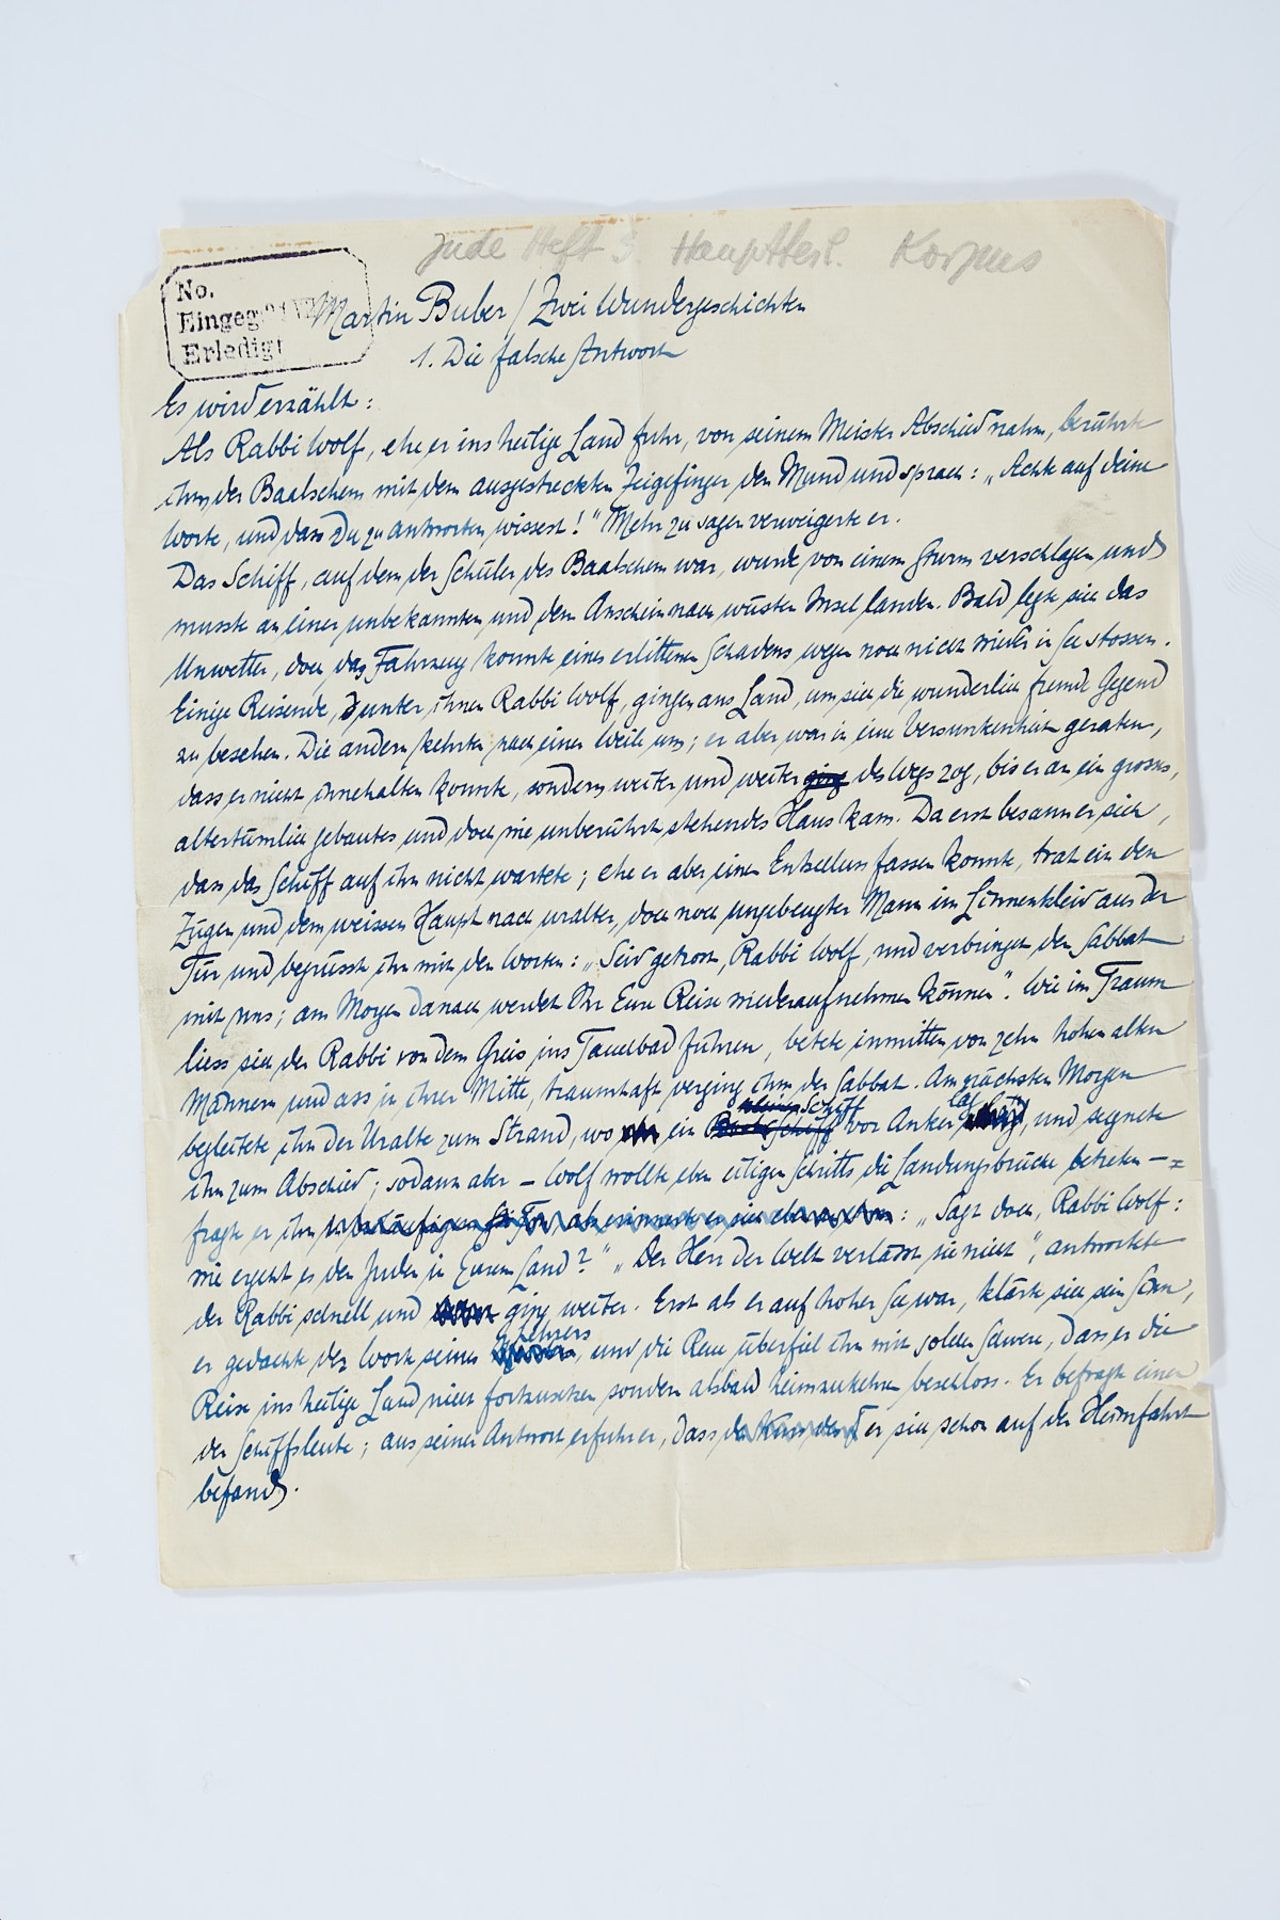 Jude Heft 3. Hauptteil. Korpus
No.
Eingeg.
Erledigt
Martin Buber / Zwei Wundergeschichten
1. Die falsche Antwort
Es wird erzählt:
Als Rabbi Wolf, ehe er ins heilige Land fuhr, von seinem Meister Abschied nahm, berührte
ihm der Baalschem mit dem ausgestreckten Zeigefinger den Mund und sprach: „Achte auf deine
Worte, und dass Du zu antworten wissest!“ Mehr zu sagen verweigerte er.
Das Schiff, auf dem der Schüler des Baalschem war, wurde von einem Sturm verschlagen und
musste an einer unbekannten und dem Anschein nach wüsten Insel landen. Bald legte sich das
Unwetter, doch das Fahrzeug konnte eines erlittenen Schadens wegen noch nicht wieder in See stossen.
Einige Reisende, unter ihnen Rabbi Wolf, gingen ans Land, um sich die wunderlich fremde Gegend
zu besehen. Die andern kehrten nach einer Weile um; er aber war in eine Versunkenheit geraten,
dass er nicht innehalten konnte, sondern weiter und weiter ging des Wegs zog, bis er an ein grosses,
altertümlich gebautes und doch wie unberührt stehendes Haus kam. Da erst besann er sich,
dass das Schiff auf ihn nicht wartete; ehe er aber einen Entschluss fassen konnte, trat ein den
Zügen und dem weissen Haupt nach uralter, doch noch ungebeugter Mann im Linnenkleid aus der
Tür und begrüsste ihn mit den Worten: „Seid getrost, Rabbi Wolf, und verbringet den Sabbat
mit uns; am Morgen danach werdet Ihr Eure Reise wiederaufnehmen können“. Wie im Traum
liess sich der Rabbi von dem Greis ins Tauchbad führen, betete inmitten von zehn hohen alten
Männern und ass in ihrer Mitte, traumhaft verging ihm der Sabbat. Am nächsten Morgen
begleitete ihn der Uralte zum Strand, wo ein kleines Schiff vor Anker lag, und segnete
ihn zum Abschied; sodann aber – Wolf wollte eben eiligen Schritts die Landungsbrücke betreten –
fragte er ihn: „Sagt doch, Rabbi Wolf:
wie ergeht es den Juden in Eurem Land?“ „Der Herr der Welt verlässt sie nicht“, antwortete
der Rabbi schnell und ging weiter. Erst als er auf hoher See war, klärte sich sein Sinn,
er gedachte des Worts seines Lehrers, und die Reue überfiel ihn mit solcher Schwere, dass er die
Reise ins heilige Land nicht fortzusetzen sondern alsbald heimzukehren beschloss. Er befragte einen
der Schiffsleute; aus seiner Antwort erfuhr er, dass er sich schon auf der Heimfahrt
befand.